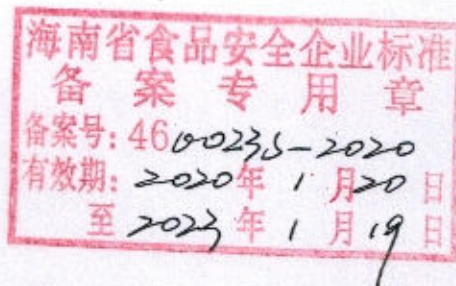 海南省食品安全企业标准
备案专用章
备案号: 460023S-2020
有效期: 2020年1月20日
至2023年1月19日